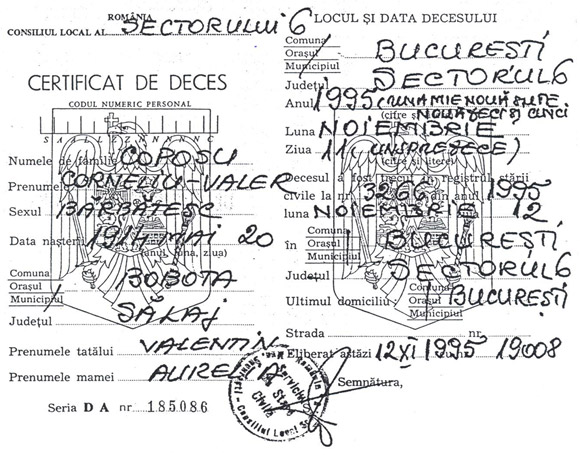 ROMÂNIA
CONSILIUL LOCAL AL SECTORULUI 6
CERTIFICAT DE DECES
CODUL NUMERIC PERSONAL
S A L Z N N N N C
Numele de familie COPOSU
Prenumele CORNELIU-VALER
Sexul BĂRBĂTESC
Data nașterii 1914 MAI 20
(anul, luna, ziua)
Comuna
Orașul BOBOTA
Municipiul
Județul SĂLAJ
Prenumele tatălui VALENTIN
Prenumele mamei AURELIA
Seria DA nr 185086
LOCUL ȘI DATA DECESULUI
Comuna
Orașul BUCUREȘTI
Municipiul
Județul SECTORUL 6
Anul 1995 (UNA MIE NOUĂ SUTE
(cifre și NOUĂZECI ȘI CINCI
Luna NOIEMBRIE
Ziua 11 (UNSPREZECE)
(cifre și litere)
Decesul a fost trecut în registrul stării
civile la nr. 3266 din anul 1995
luna NOIEMBRIE ziua 12
în BUCUREȘTI
Județul SECTORUL 6
Comuna
Ultimul domiciliu: Orașul BUCUREȘTI
Municipiul
Strada nr.
Eliberat astăzi 12 XI 1995 cu nr. 19008
Semnătura,
România
Serviciul
Stare
Civilă
Consiliul Local